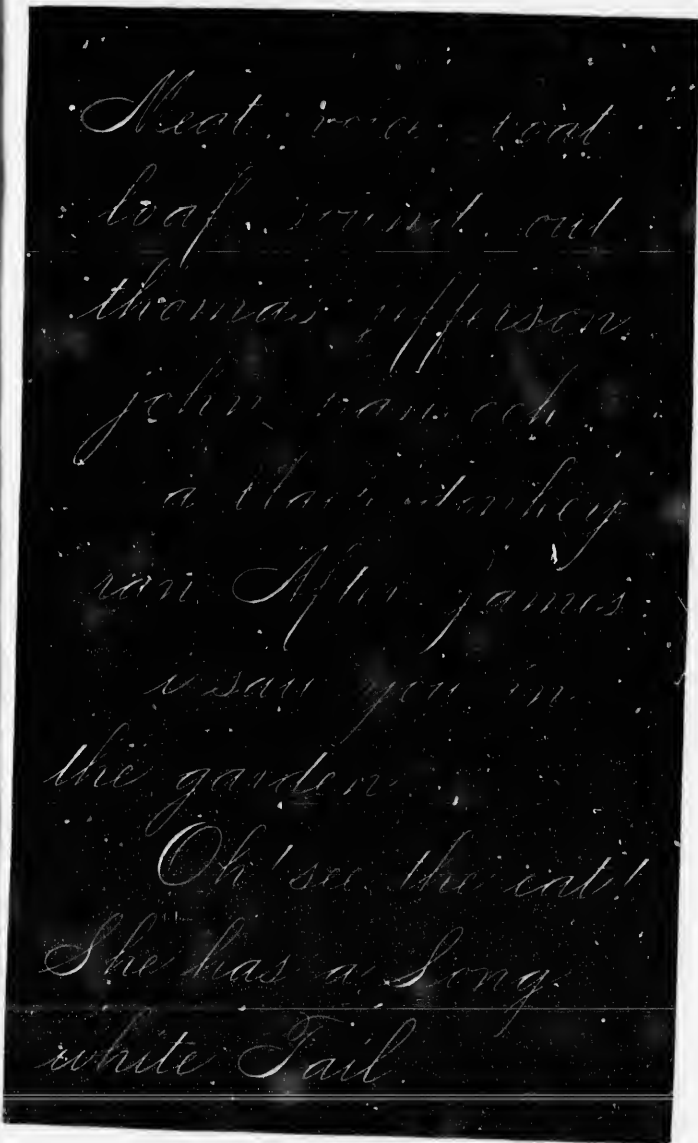 Meat. voice. coat
loaf. sound. out
thomas jefferson.
john
a black donkey
ran After james.
i saw you in
the garden.
Oh! see the cat!
She has a Long
white Tail.